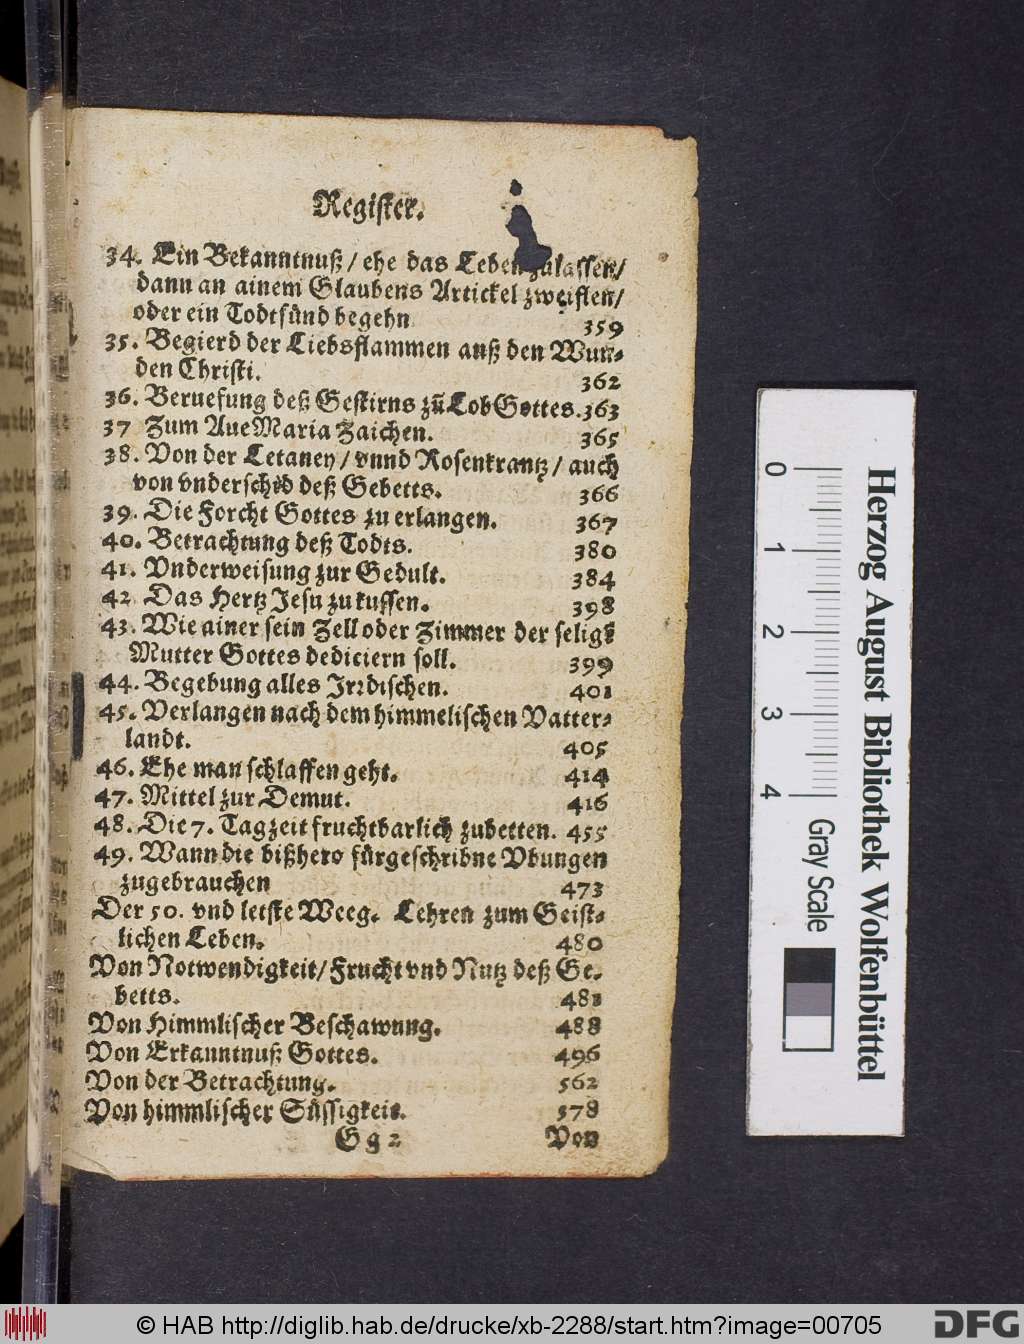 Register.
34. Ein Bekanntnuß / ehe das Leben zulassen /
dann an ainem Glaubens Artickel zweiflen /
oder ein Todtsünd begehn 359
35. Begierd der Liebsflammen auß den Wun-
den Christi. 362
36. Beruefung deß Gestirns zū Lob Gottes. 363
37 Zum Aue Maria Zaichen. 365
38. Von der Letaney / vnnd Rosenkrantz / auch
von vnderschid deß Gebetts. 366
39. Die Forcht Gottes zu erlangen. 367
40. Betrachtung deß Todts. 380
41. Vnderweisung zur Gedult. 384
42 Das Hertz Jesu zu kussen. 398
43. Wie ainer sein Zell oder Zimmer der selige
Mutter Gottes dediciern soll. 399
44. Begebung alles Irrdischen. 401
45. Verlangen nach dem himmelischen Vatter-
landt. 405
46. Ehe man schlaffen geht. 414
47. Mittel zur Demut. 416
48. Die 7. Tagzeit fruchtbarlich zubetten. 455
49. Wann die bißhero fürgeschribne Vbungen
zugebrauchen 473
Der 50. vnd letste Weeg. Lehren zum Geist-
lichen Leben. 480
Von Notwendigkeit / Frucht vnd Nutz deß Ge-
betts. 481
Von Himmlischer Beschawung. 488
Von Erkanntnuß Gottes. 496
Von der Betrachtung. 562
Von himmlischer Süssigkeit. 578
Gg 2 Von
0 1 2 3 4 Gray Scale
Herzog August Bibliothek Wolfenbüttel
© HAB http://diglib.hab.de/drucke/xb-2288/start.htm?image=00705
DFG